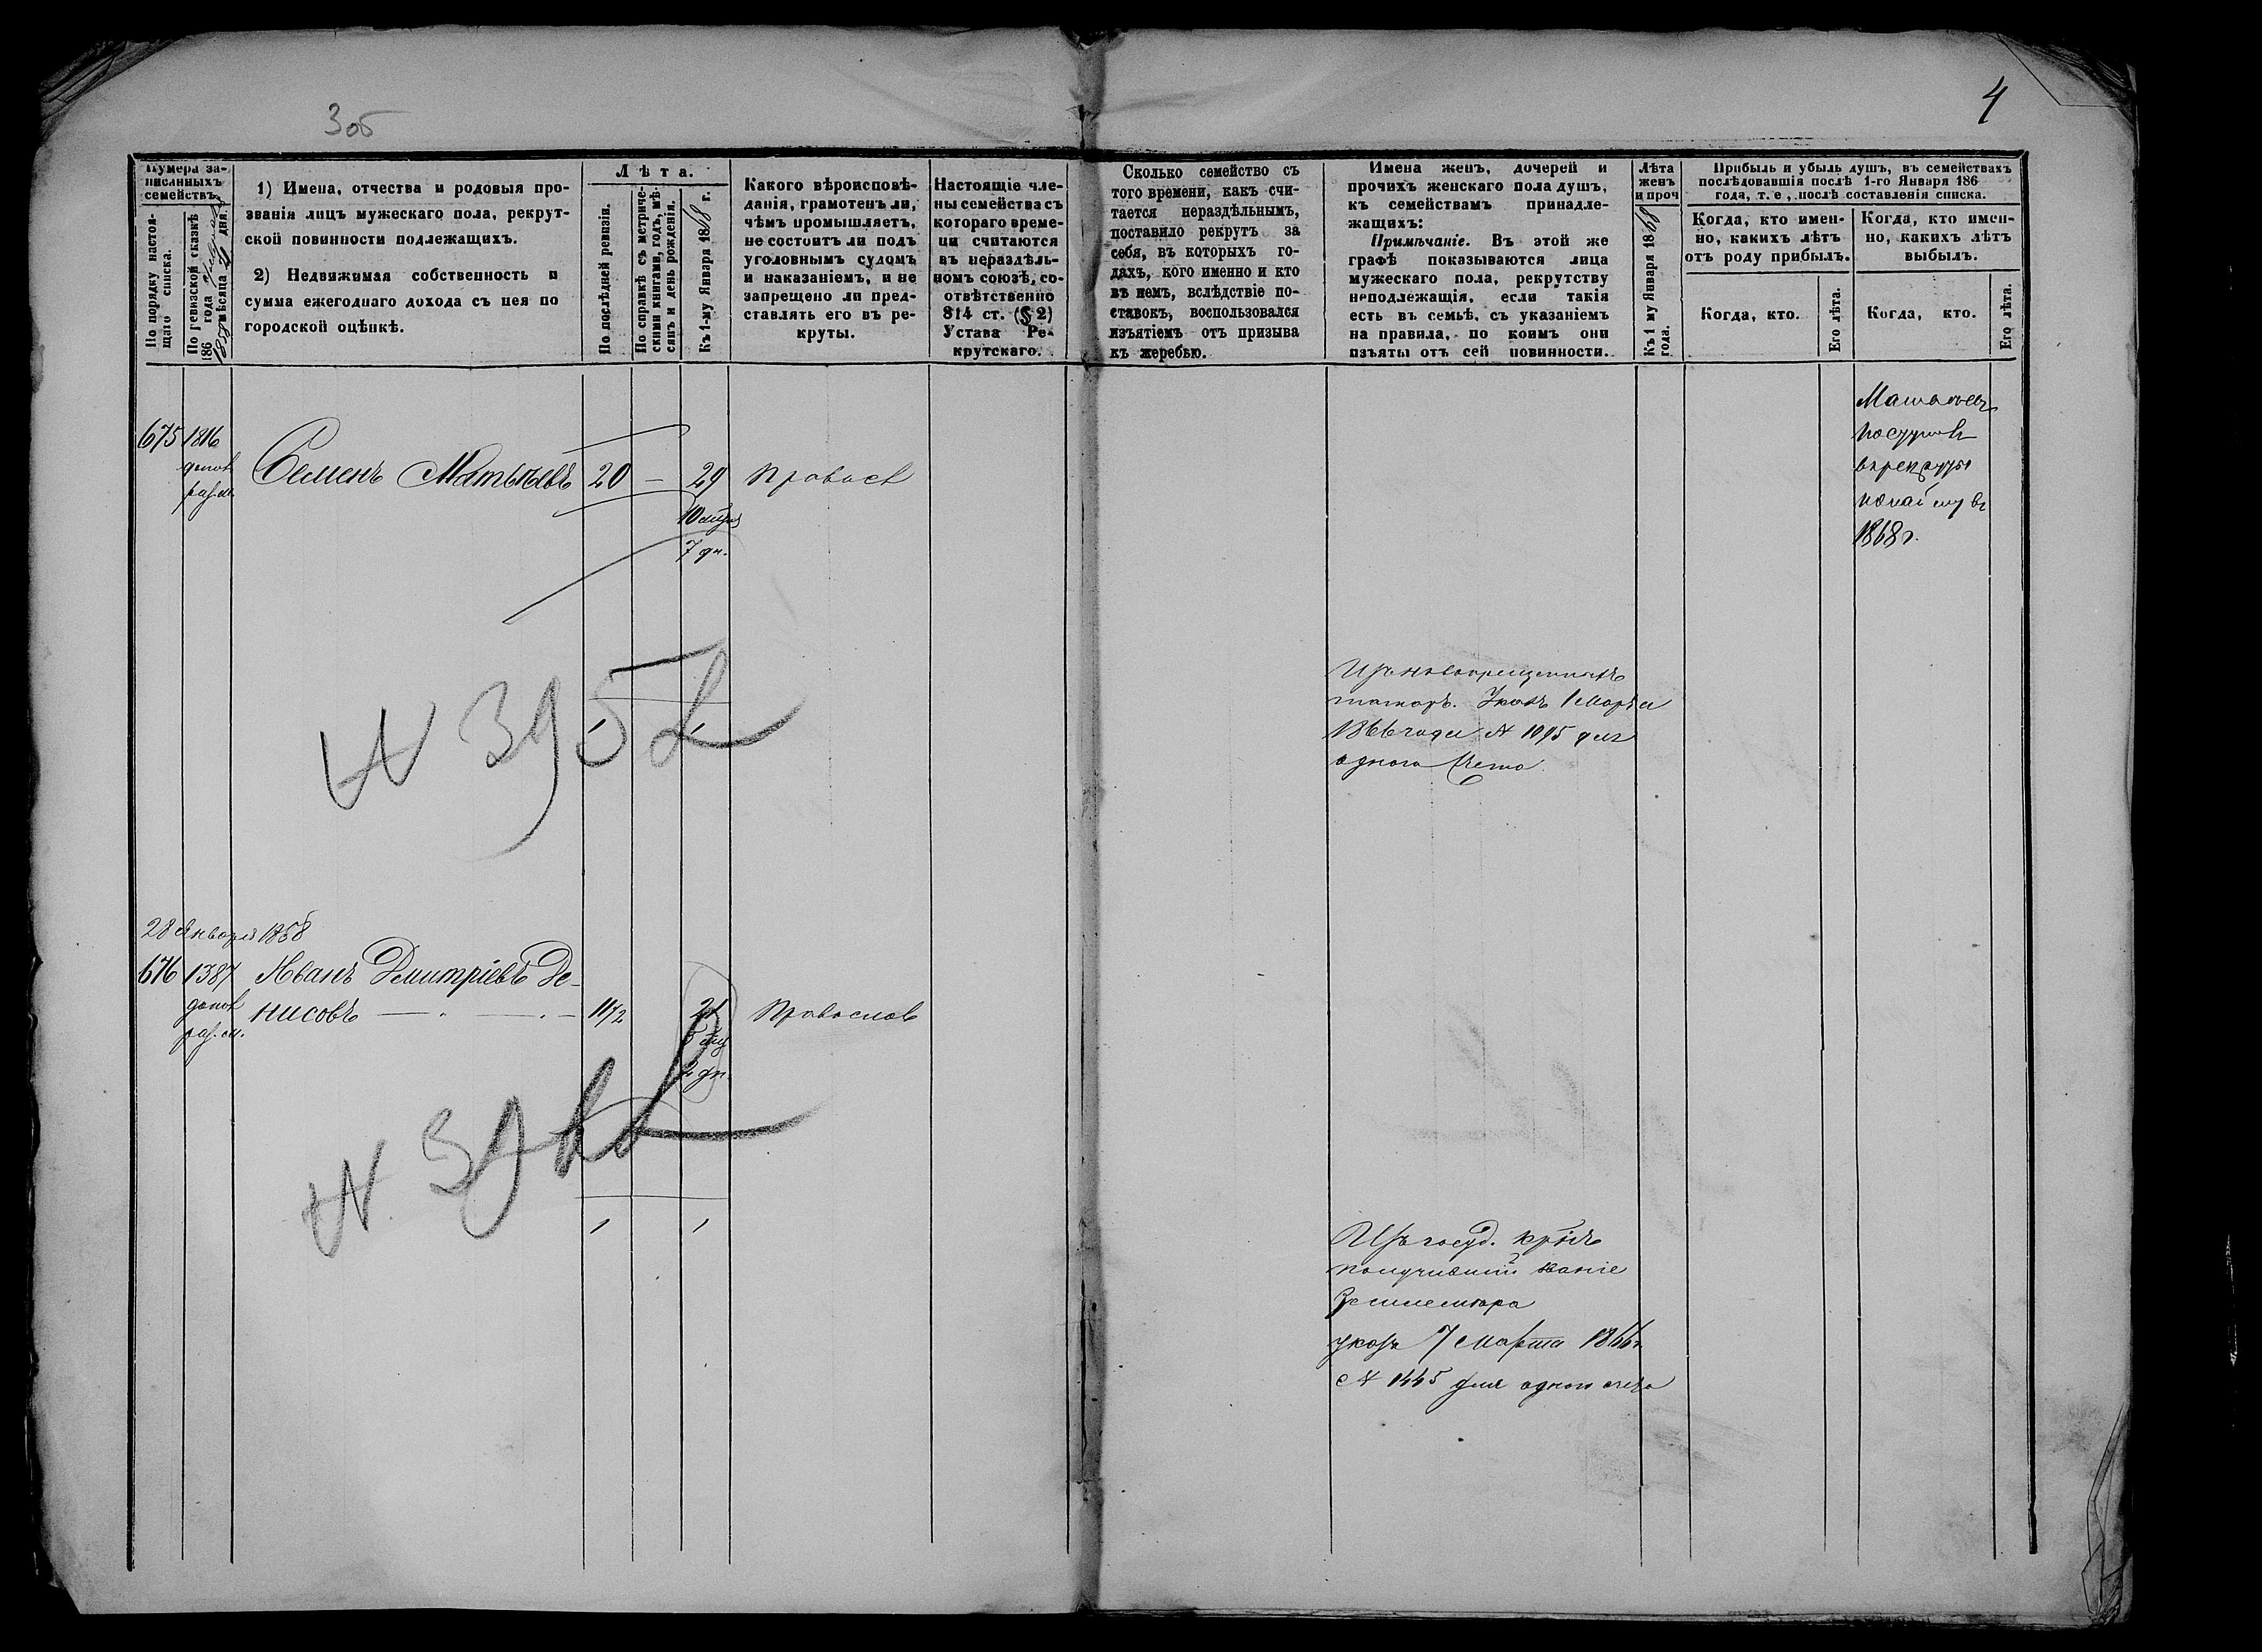 3об
4
Нумера записанныхъ семействъ.
По порядку настоящаго списка.
По ревизской сказкѣ
186 года
мѣсяца дня.
1) Имена, отчества и родовыя про-
званія лицъ мужескаго пола, рекрут-
ской повинности подлежащихъ.
2) Недвижимая собственность и
сумма ежегоднаго дохода съ нея по
городской оцѣнкѣ.
Лѣта.
По послѣдней ревизіи.
По справкѣ съ метриче-
скими книгами, годъ, мѣ-
сяцъ и день рожденія.
Къ 1-му Января 1868 г.
Какого вѣроисповѣ-
данія, грамотенъ ли,
чѣмъ промышляетъ,
не состоитъ ли подъ
уголовнымъ судомъ
и наказаніемъ, и не
запрещено ли пред-
ставлять его въ ре-
круты.
Настоящіе чле-
ны семейства съ
котораго време-
ни считаются
въ нераздѣль-
номъ союзѣ, со-
отвѣтственно
814 ст. (§ 2)
Устава Ре-
крутскаго.
Сколько семейство съ
того времени, какъ счи-
тается нераздѣльнымъ,
поставило рекрутъ за
себя, въ которыхъ го-
дахъ, кого именно и кто
въ немъ, вслѣдствіе по-
ставокъ, воспользовался
изъятіемъ отъ призыва
къ жеребью.
Имена женъ, дочерей и
прочихъ женскаго пола душъ,
къ семействамъ принадле-
жащихъ:
Примѣчаніе. Въ этой же
графѣ показываются лица
мужескаго пола, рекрутству
неподлежащія, если такія
есть въ семьѣ, съ указаніемъ
на правила, по коимъ они
изъяты отъ сей повинности.
Лѣта
женъ
и проч
Къ 1 му Января 1868
года.
Прибыль и убыль душъ, въ семействахъ
послѣдовавшія послѣ 1-го Января 186
года, т. е., послѣ составленія списка.
Когда, кто имен-
но, какихъ лѣтъ
отъ роду прибылъ.
Когда, кто имен-
но, какихъ лѣтъ
выбылъ.
Когда, кто.
Его лѣта.
Когда, кто.
Его лѣта.
675 1816 Семенъ Матвѣевъ 20 — 29 Правосл
допол
раз. м.
10 мѣся
7 дн.
Матвѣевъ
поступил
въ рекруты
по найму въ
1868 г.
N 3952
1 1
Изъ новокрещенныхъ
татаръ. Указъ 1 Марта
1866 года N 1095 для
одного счета
28 Января 1858
676 1387 Иванъ Дмитріевъ Де-
допол нисовъ — 11½ 21 Православ
раз. м.
5 мѣ
2 дн.
1 1
Изъ госуд. крѣст
получившій званіе
Землемѣра
указъ 7 Марта 1866 г.
N 1445 для одного счета